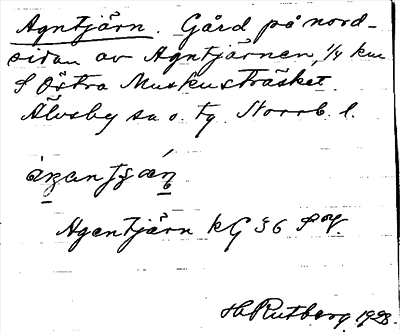 Agntjärn. Gård på nord-
sidan av Agntjärnen, 1/4 km
S Östra Muskusträsket.
Älvsby sn o. tg. Norrb. l.
Agentjärn kG 36
H. Rutberg 1928.